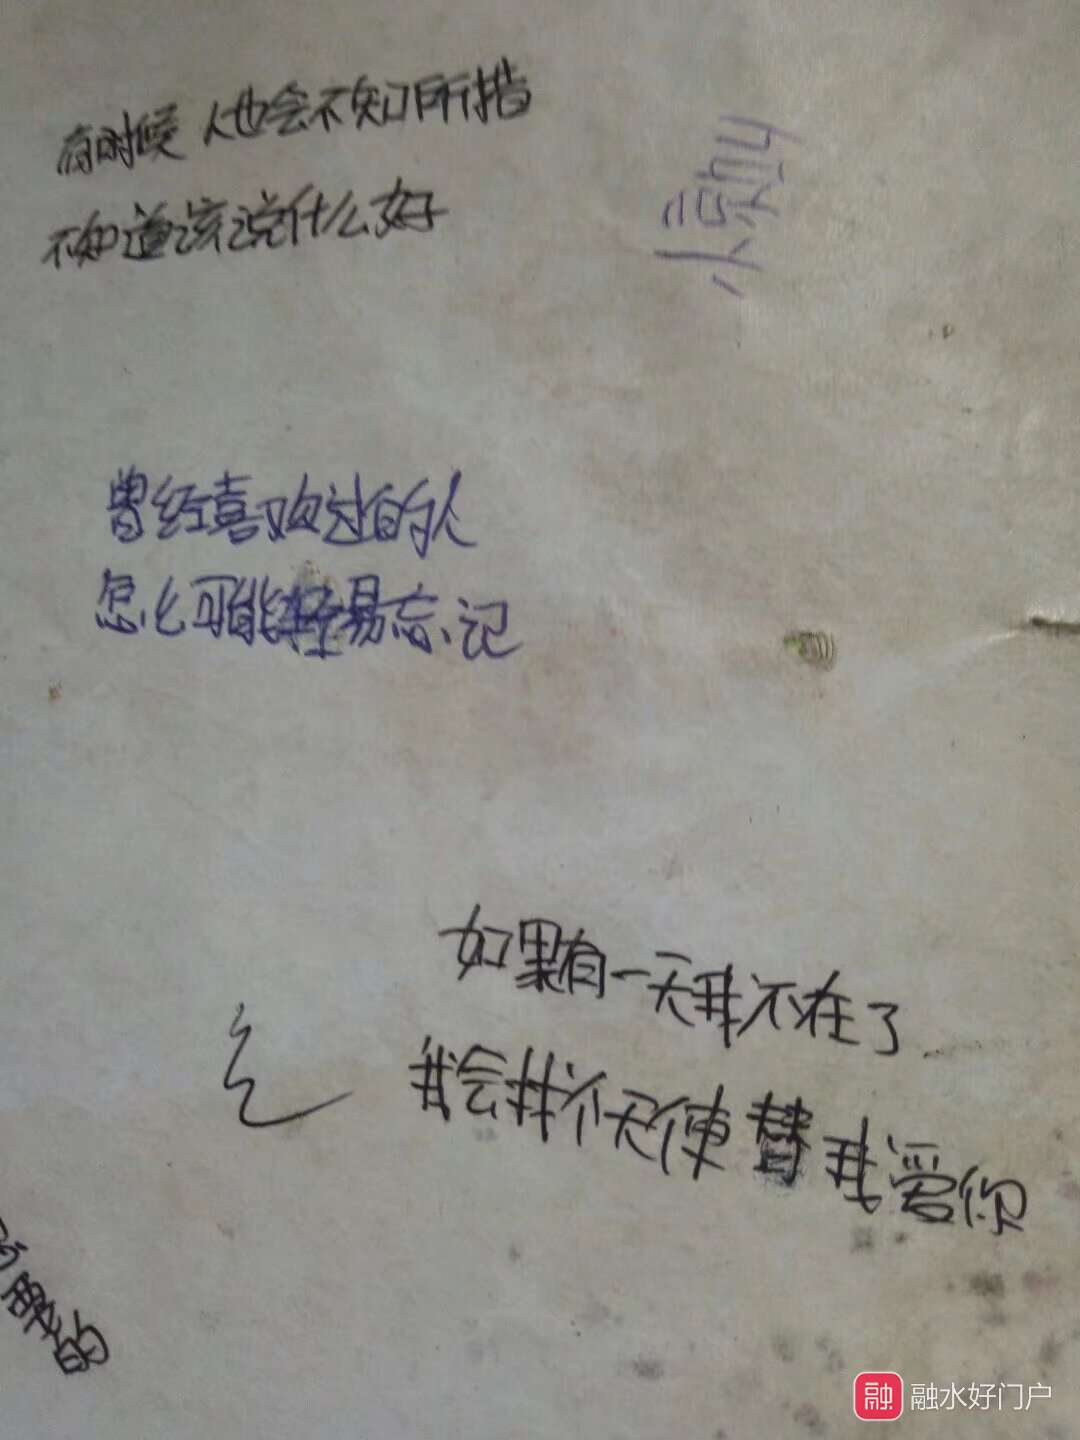 有时候 人也会不知所措
不知道该说什么好
曾经喜欢过的人
怎么可能轻易忘记
如果有一天我不在了
我会找个天使替我爱你
的
融 融水好门户